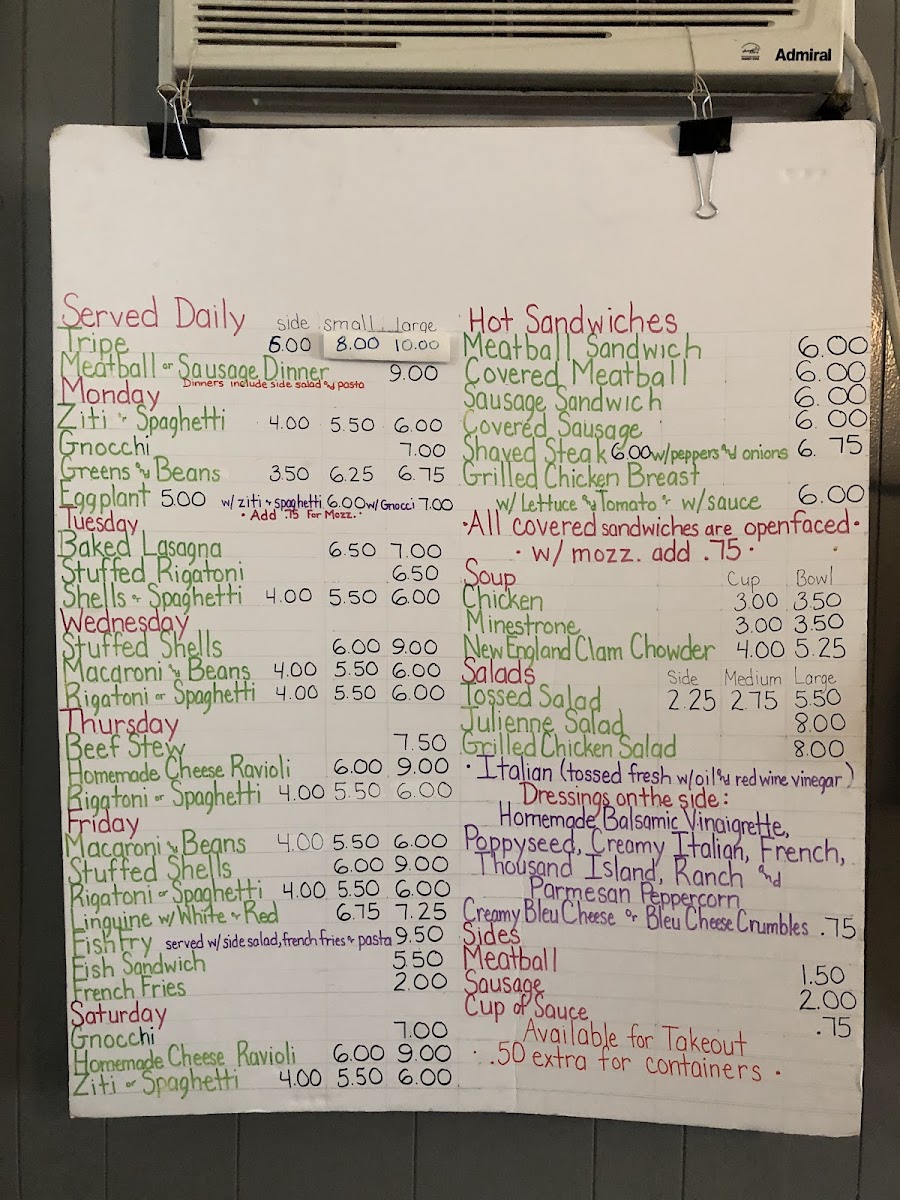 Admiral
Served Daily side small large
Tripe 6.00 8.00 10.00
Meatball or Sausage Dinner 9.00
Dinners include side salad and pasta
Monday
Ziti or Spaghetti 4.00 5.50 6.00
Gnocchi 7.00
Greens and Beans 3.50 6.25 6.75
Eggplant 5.00 w/ ziti or spaghetti 6.00 w/ Gnocci 7.00
• Add .75 For Mozz. •
Tuesday
Baked Lasagna 6.50 7.00
Stuffed Rigatoni 6.50
Shells or Spaghetti 4.00 5.50 6.00
Wednesday
Stuffed Shells 6.00 9.00
Macaroni and Beans 4.00 5.50 6.00
Rigatoni or Spaghetti 4.00 5.50 6.00
Thursday
Beef Stew 7.50
Homemade Cheese Ravioli 6.00 9.00
Rigatoni or Spaghetti 4.00 5.50 6.00
Friday
Macaroni and Beans 4.00 5.50 6.00
Stuffed Shells 6.00 9.00
Rigatoni or Spaghetti 4.00 5.50 6.00
Linguine w/ White or Red 6.75 7.25
Fish Fry served w/ side salad, french fries or pasta 9.50
Fish Sandwich 5.50
French Fries 2.00
Saturday
Gnocchi 7.00
Homemade Cheese Ravioli 6.00 9.00
Ziti or Spaghetti 4.00 5.50 6.00
Hot Sandwiches
Meatball Sandwich 6.00
Covered Meatball 6.00
Sausage Sandwich 6.00
Covered Sausage 6.00
Shaved Steak 6.00 w/peppers and onions 6.75
Grilled Chicken Breast
w/ Lettuce and Tomato or w/sauce 6.00
• All covered sandwiches are openfaced •
• w/ mozz. add .75 •
Soup Cup Bowl
Chicken 3.00 3.50
Minestrone 3.00 3.50
New England Clam Chowder 4.00 5.25
Salads Side Medium Large
Tossed Salad 2.25 2.75 5.50
Julienne Salad 8.00
Grilled Chicken Salad 8.00
• Italian (tossed fresh w/oil and red wine vinegar)
Dressings on the side:
Homemade Balsamic Vinaigrette,
Poppyseed, Creamy Italian, French,
Thousand Island, Ranch and
Parmesan Peppercorn
Creamy Bleu Cheese or Bleu Cheese Crumbles .75
Sides
Meatball 1.50
Sausage 2.00
Cup of Sauce .75
Available for Takeout
• .50 extra for containers •